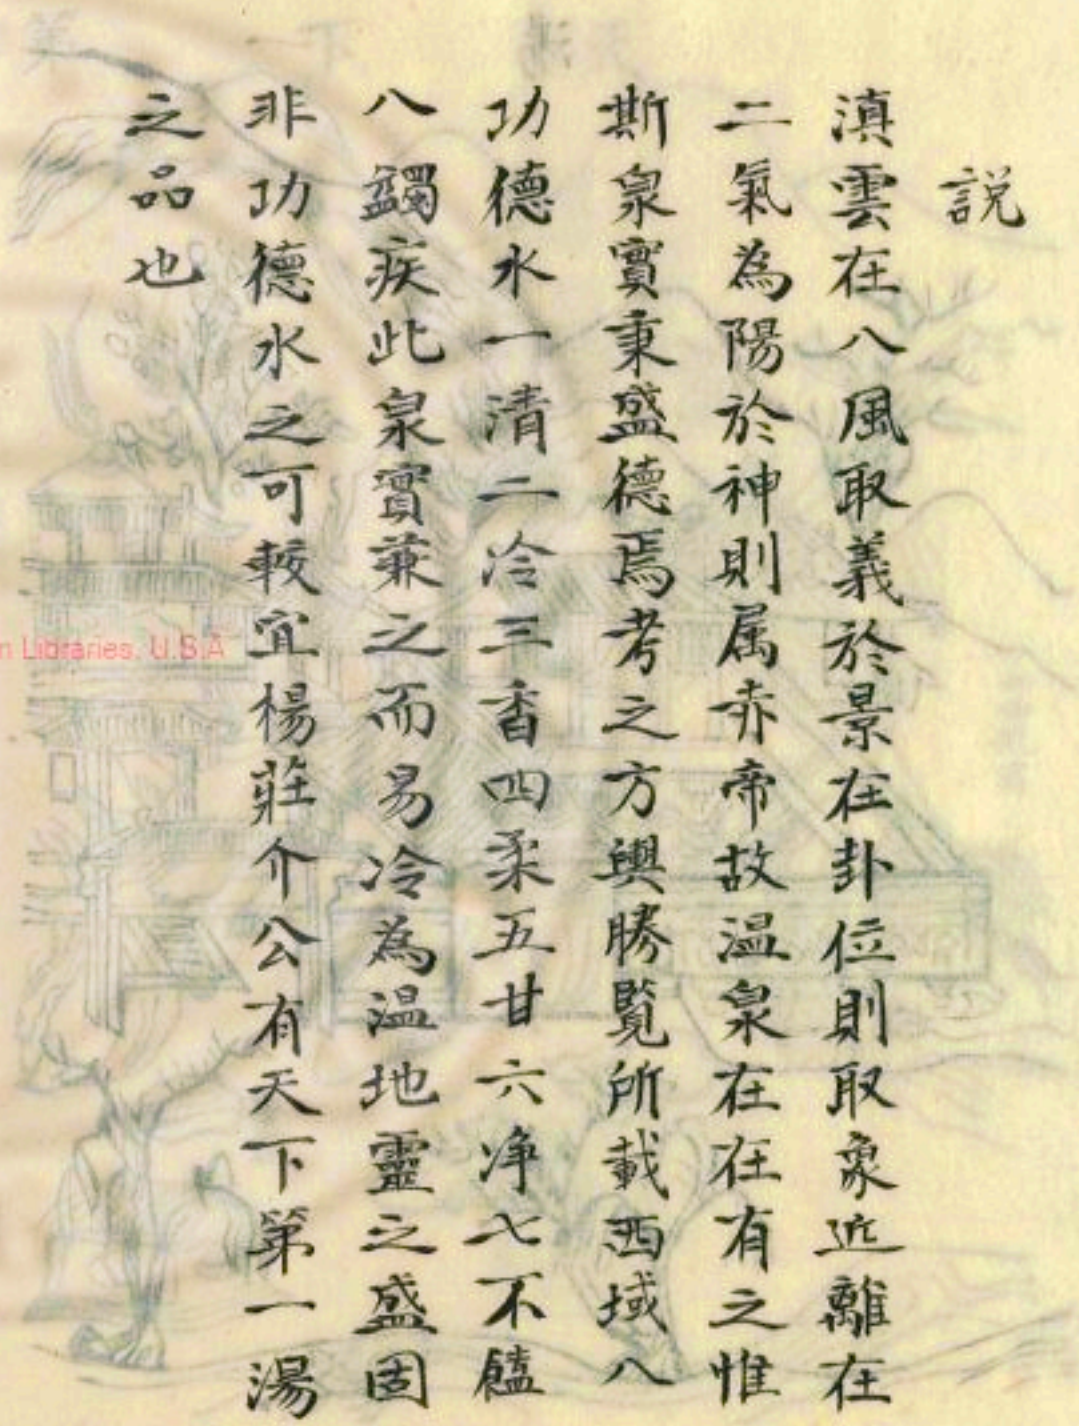 説
滇雲在八風取義於景在卦位則取象近離在
二氣為陽於神則属赤帝故温泉在在有之惟
斯泉實秉盛德焉考之方輿勝覧所載西域八
功德水一清二冷三香四柔五甘六净七不饐
八蠲疾此泉實兼之而易冷為温地靈之盛固
非功德水之可較宜楊莊介公有天下第一湯
之品也
n Libraries, U.S.A